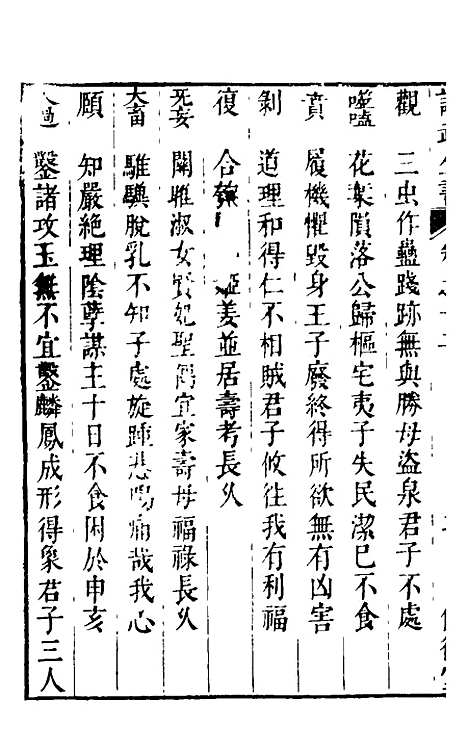 觀　三虫作蠱踐跡無與勝母盜泉君子不處
噬嗑　花葉隕落公歸嫗宅夷子失民潔巳不食
賁　履機懼毀身王子廢終得所欲無有凶害
剝　道理和得仁不相賊君子攸往我有利福
復　合　姬姜並居壽考長久
无妄　關雎淑女賢妃聖偶宜家壽母福祿長久
大畜　騅驥脫乳不知子處旋踵悲鳴痛哉我心
頤　知嚴絕理陰孽謀主十日不食困於申亥
大過　鑿諸攻玉無不宜鑿麟鳳成形得象君子三人